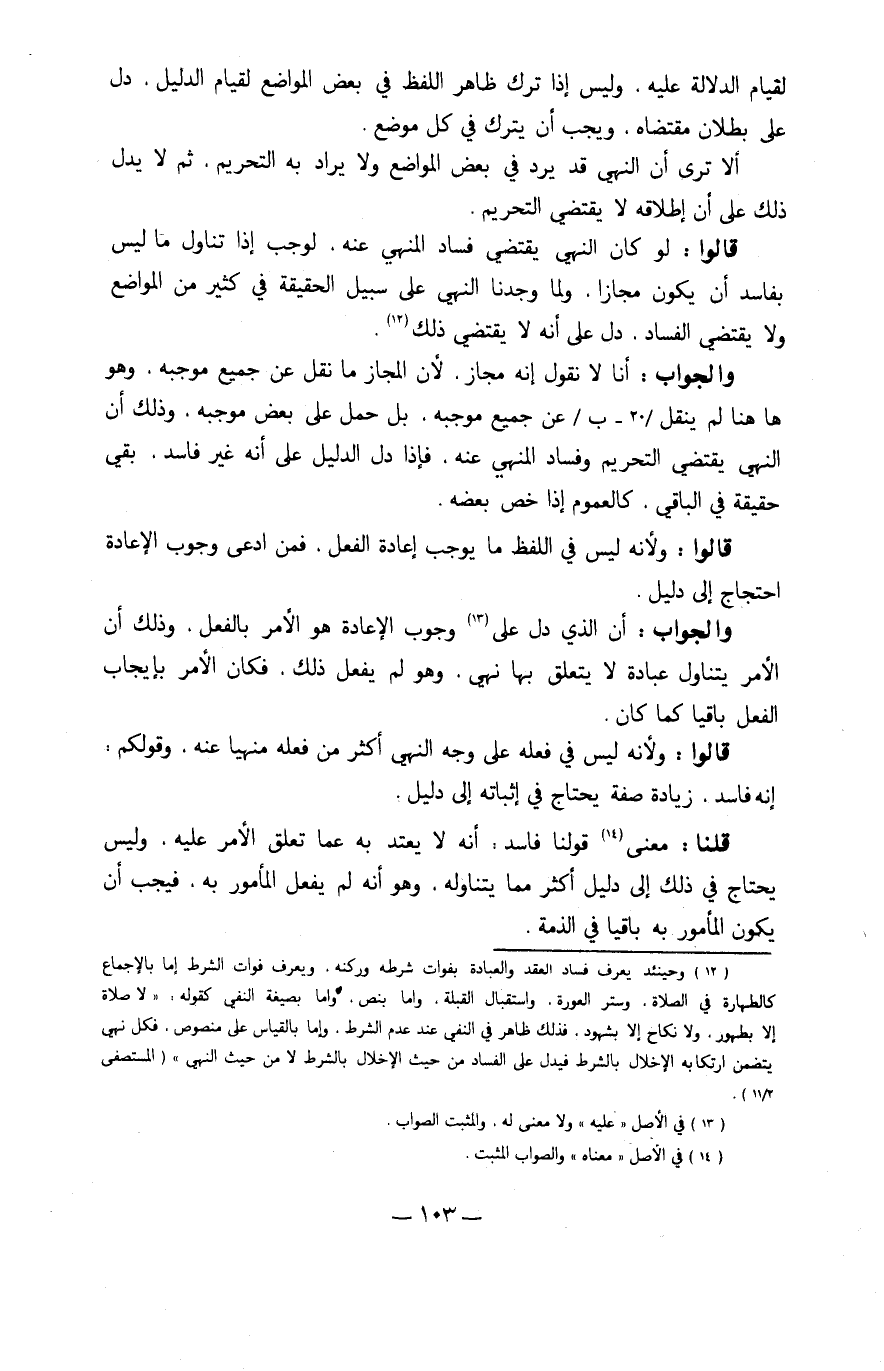 لقيام الدلالة عليه ، وليس إذا ترك ظاهر اللفظ في بعض المواضع لقيام الدليل ، دل
على بطلان مقتضاه ، ويجب أن يترك في كل موضع .
ألا ترى أن النهي قد يرد في بعض المواضع ولا يراد به التحريم ، ثم لا يدل
ذلك على أن إطلاقه لا يقتضي التحريم .
قالوا : لو كان النهي يقتضي فساد المنهي عنه ، لوجب إذا تناول ما ليس
بفاسد أن يكون مجازا . ولما وجدنا النهي على سبيل الحقيقة في كثير من المواضع
ولا يقتضي الفساد ، دل على أنه لا يقتضي ذلك (١٢) .
والجواب : أنا لا نقول إنه مجاز ، لأن المجاز ما نقل عن جميع موجبه ، وهو
ها هنا لم ينقل /٢٠ ـ ب / عن جميع موجبه ، بل حمل على بعض موجبه ، وذلك أن
النهي يقتضي التحريم وفساد المنهي عنه ، فإذا دل الدليل على أنه غير فاسد ، بقي
حقيقة في الباقي ، كالعموم إذا خص بعضه .
قالوا : ولأنه ليس في اللفظ ما يوجب إعادة الفعل ، فمن ادعى وجوب الإعادة
احتجاج إلى دليل .
والجواب : أن الذي دل على (١٣) وجوب الإعادة هو الأمر بالفعل ، وذلك أن
الأمر يتناول عبادة لا يتعلق بها نهي ، وهو لم يفعل ذلك ، فكان الأمر بإيجاب
الفعل باقيا كما كان .
قالوا : ولأنه ليس في فعله على وجه النهي أكثر من فعله منهيا عنه ، وقولكم :
إنه فاسد ، زيادة صفة يحتاج في إثباته إلى دليل .
قلنا : معنى (١٤) قولنا فاسد : أنه لا يعتد به عما تعلق الأمر عليه ، وليس
يحتاج في ذلك إلى دليل أكثر مما يتناوله ، وهو أنه لم يفعل المأمور به ، فيجب أن
يكون المأمور به باقيا في الذمة .
( ١٢ ) وحينئد يعرف فساد العقد والعبادة بفوات شرطه وركنه ، ويعرف فوات الشرط إما بالإجماع
كالطهارة في الصلاة ، وستر العورة ، واستقبال القبلة ، واما بنص ، واما بصيفة النفي كقوله : « لا صلاة
إلا بطهور ، ولا نكاح إلا بشهود ، فذلك ظاهر في النفي عند عدم الشرط ، وإما بالقياس على منصوص ، فكل نهي
يتضمن ارتكابه الإخلال بالشرط فيدل على الفساد من حيث الإخلال بالشرط لا من حيث النهي » ( المستصفى
١١/٢ ) .
( ١٣ ) في الأصل « عليه » ولا معنى له ، والمثبت الصواب .
( ١٤ ) في الأصل « معناه » والصواب المثبت .
— ١٠٣ —